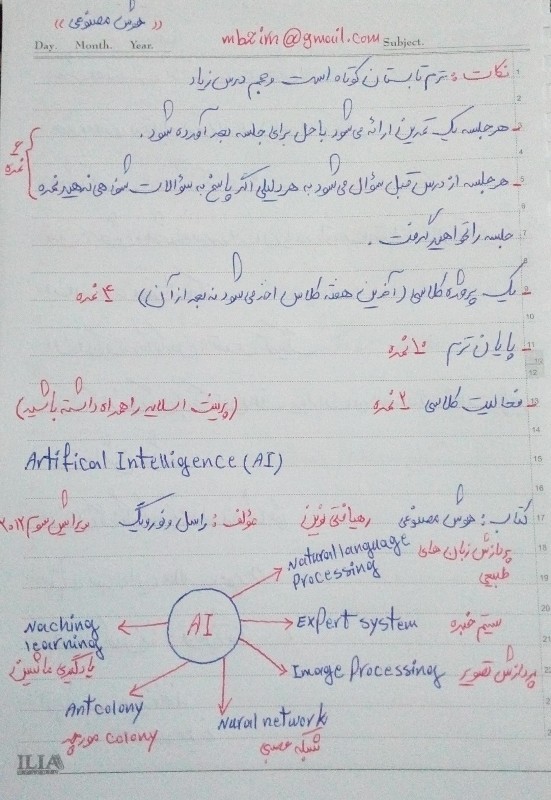 « هوش مصنوعی »
Day. Month. Year. mbzim@gmail.com Subject.
نکات : ترم تابستان کوتاه است و حجم درس زیاد
- هر جلسه یک تمرین ارائه می‌شود با حل برای جلسه بعد آورده شود .
۴ نمره
- هر جلسه از درس قبل سؤال می‌شود به هر دلیلی اگر پاسخ به سؤالات شفاهی ندهید نمره
جلسه را نخواهید گرفت .
- یک پروژه کلاسی (آخرین هفته کلاس اخذ می‌شود نه بعد از آن) ۴ نمره
- پایان ترم ۱۰ نمره
- فعالیت کلاسی ۲ نمره (پرینت اسلاید را همراه داشته باشید)
Artifical Intelligence (AI)
کتاب : هوش مصنوعی رهیافتی نوین مؤلف : راسل و نورویگ ویرایش سوم ۲۰۱۲
AI
Natural language Processing پردازش زبان های طبیعی
Expert system سیتم خبره
Image Processing پردازش تصویر
Nural network
شبکه عصبی
Ant colony
colony مورچه
Maching learning
یادگیری ماشین
1
2
3
4
5
6
7
8
9
10
11
12
13
14
15
16
17
18
19
20
21
22
ILIA